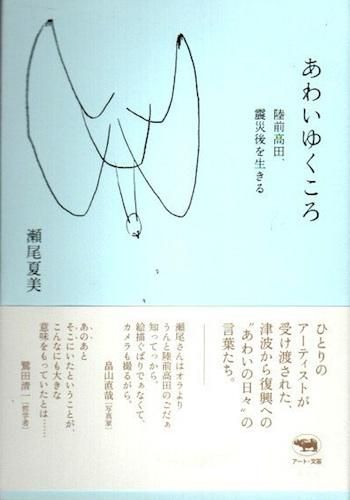 あわいゆくころ
陸前高田、
震災後を生きる
瀬尾夏美
ひとりの
アーティストが
受け渡された、
津波から復興への
〝あわいの日々〟の
言葉たち。
瀬尾さんはオラより
うんと陸前高田のごだぁ
知ってっから。
絵描ぐばりでぁなくて、
カメラも撮るがら。
畠山直哉[写真家]
あのあと
そこにいたということが、
こんなにも大きな
意味をもっていたとは……
鷲田清一[哲学者]
アート・文芸